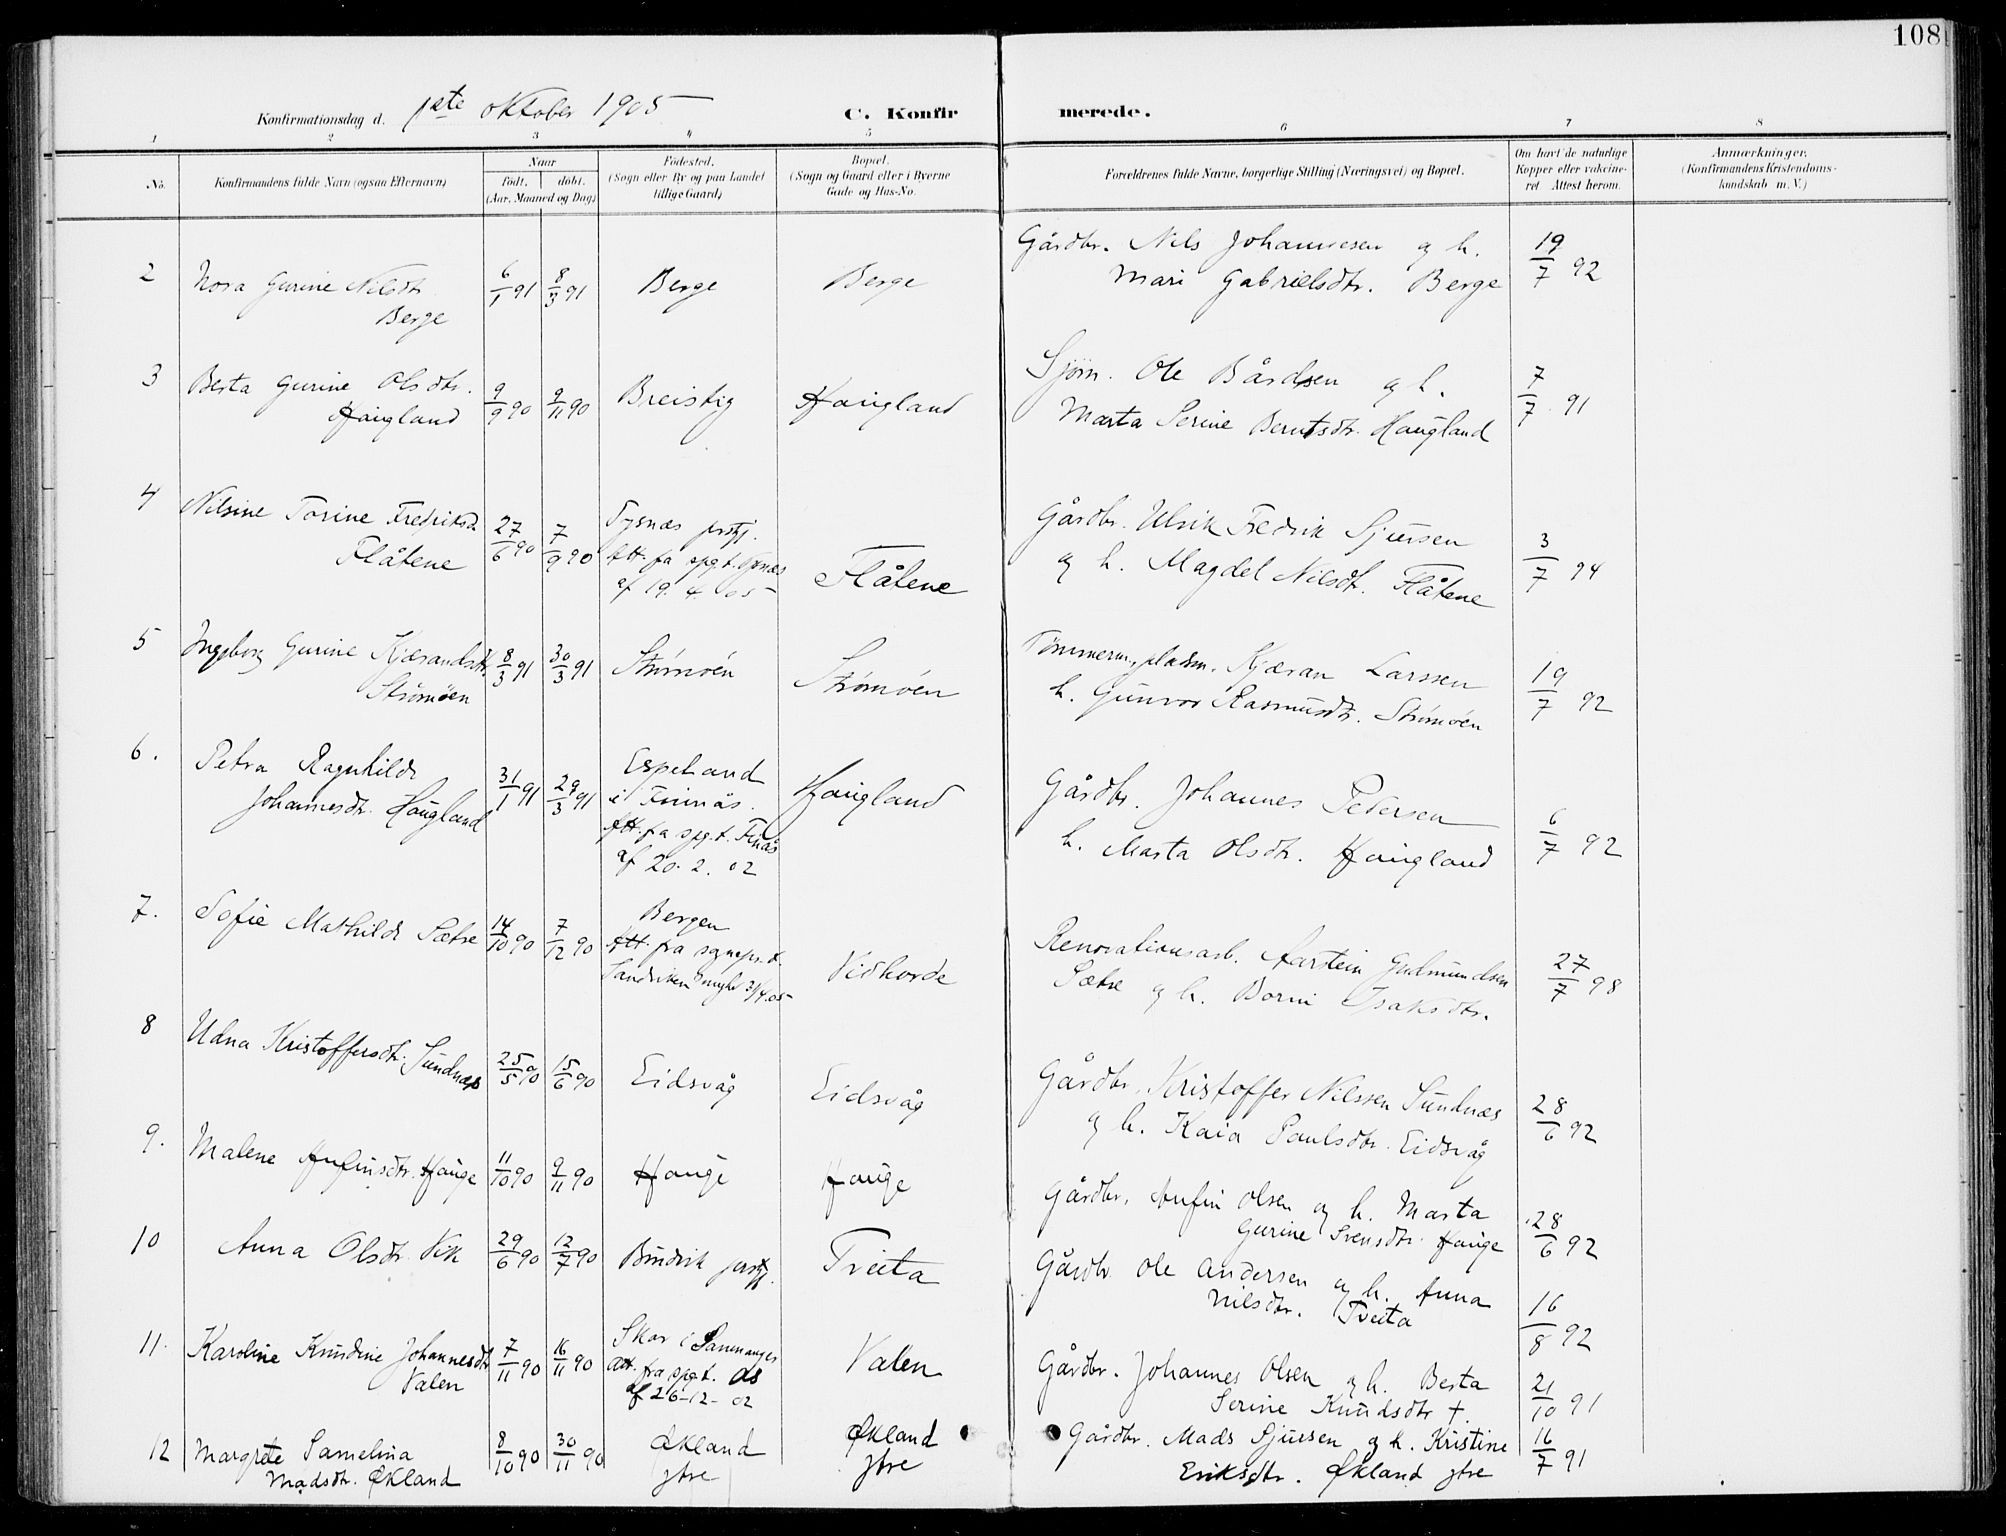 108
Konfirmationsdag d. 1ste oktober 1905 C. Konfirmerede.
1 2 3 4 5 6 7 8
No. Konfirmandens fulde Navn (ogsaa Efternavn) Naar født. døbt. (Aar, Maaned og Dag) Fødested. (Sogn eller By og paa Landet tillige Gaard) Bopæl. (Sogn og Gaard eller i Byerne Gade og Hus-No. Forældrenes fulde Navne, borgerlige Stilling (Næringsvei) og Bopæl. Om havt de naturlige Kopper eller vakcineret. Attest herom. Anmærkninger. (Konfirmandens Kristendomskundskab m. V.)
2 Nora Gurine Nilsdtr. 6/1 91 8/3 91 Berge Berge Gårdbr. Nils Johannesen og h. 19/7 92
Berge Mari Gabrielsdtr. Berge
3 Berta Gurine Olsdtr. 9/9 90 9/11 90 Breistig Haugland Sjøm. Ole Bårdsen og h. 7/7 91
Haugland Marta Serine Berntsdtr. Haugland
4 Nilsine Torine Fredriksd. 27/6 90 7/9 90 Tysnæs prstgj. Gårdbr. Ulrik Fredrik Sjursen 3/7 94
Flåtene Att. fra spgt. Tysnæs Flåtene og h. Magdel Nilsdt. Flåtene
af 19. 4. 05
5 Ingeborg Gurine Kjærandsdtr. 8/3 91 30/3 91 Strømøen Strømøen Tømmerm., pladsm. Kjæran Larssen 19/7 92
Strømøen h. Gunvor Rasmusdtr. Strømøen
6. Petra Ragnhilda 31/1 91 29/3 91 Espeland Haugland Gårdbr. Johannes Pedersen 6/7 92
Johannesdtr. Haugland i Finnås. h. Marta Olsdtr. Haugland
Att. fra spgt. Finås
af 20. 2. 02
7. Sofie Mathilde Sætre 14/10 90 7/12 90 Bergen Vidhorde Renovationsarb. Aarstein Gudmundsen 27/7 98
Att. fra sgnepr. t. Sætre og h. Borni Isaksdtr.
Sandviken 3/4 05
8 Udna Kristoffersdtr. Sundnæs 25/5 90 15/6 90 Eidsvåg Eidsvåg Gårdbr. Kristoffer Nilssen Sundnæs 28/6 92
og h. Kaia Paulsdtr. Eidsvåg
9. Malene Anfinsdtr. Hauge 11/10 90 9/11 90 Hauge Hauge Gårdbr. Anfin Olsen og h. Marta 28/6 92
Gurine Svensdtr. Hauge
10 Anna Olsdtr. Vik 29/6 90 12/7 90 Bindvik prstgj. Tveita Gårdbr. Ole Andersen og h. Anna 16/8 92
Nilsdtr. Tveita
11. Karoline Knudine Johannesdtr. 7/11 90 16/11 90 Skar i Sammanger Valen Gårdbr. Johannes Olsen og h. Berta 21/10 91
Valen Att. fra spgt. Os Serine Knudsdtr †.
af 26-12-02
12 Margrete Samelina 8/10 90 30/11 90 Økland Økland Gårdbr. Mads Sjursen og h. Kristine 16/7 91
Madsdtr. Økland ytre ytre Eriksdtr. Økland ytre